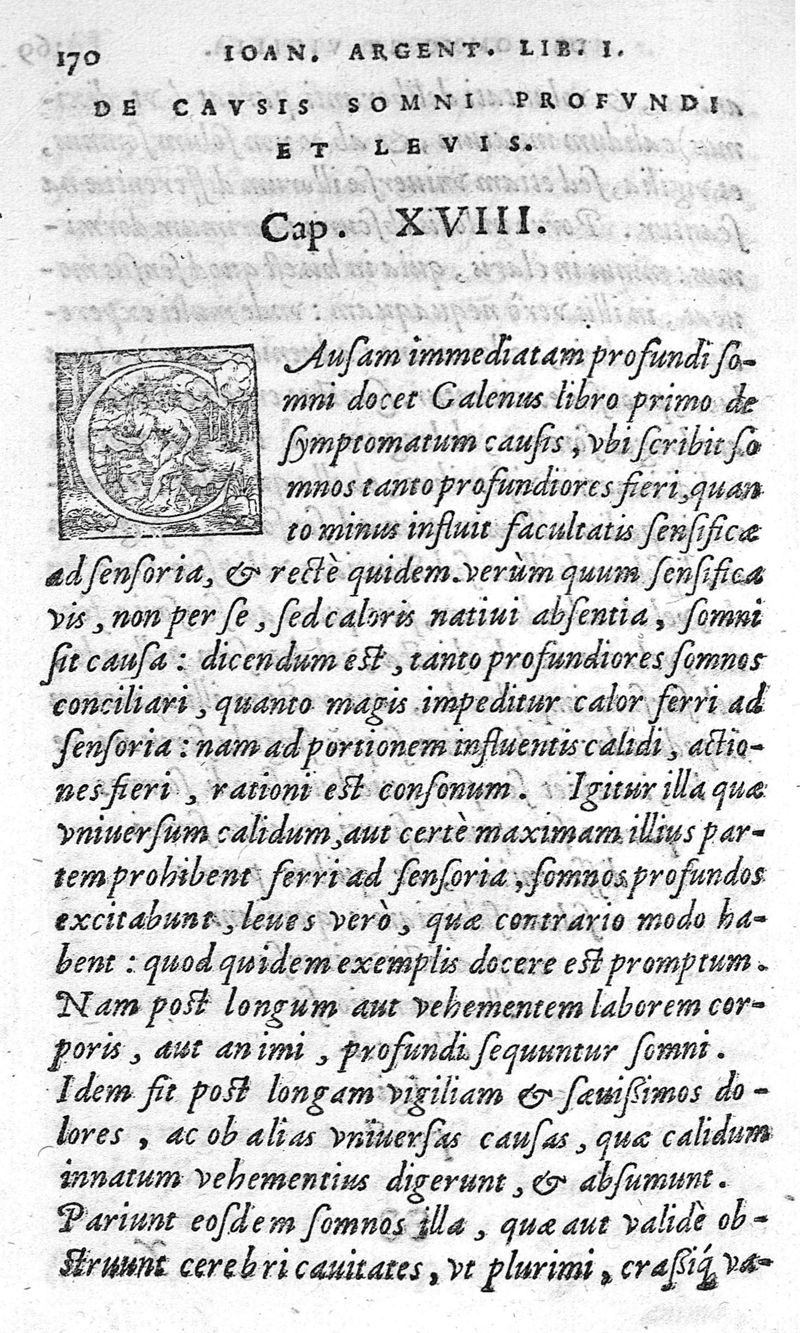 170 IOAN. ARGENT. LIB. I.
DE CAVSIS SOMNI PROFVNDI
ET LEVIS.
Cap. XVIII.
CAuſam immediatam profundi ſo-
mni docet Galenus libro primo de
ſymptomatum cauſis, vbi ſcribit ſo
mnos tanto profundiores fieri, quan
to minus influit facultatis ſenſificæ
ad ſenſoria, & rectè quidem. verùm quum ſenſifica
vis, non per se, ſed caloris natiui abſentia, ſomni
ſit cauſa: dicendum eſt, tanto profundiores ſomnos
conciliari, quanto magis impeditur calor ferri ad
ſenſoria: nam ad portionem influentis calidi, actio-
nes fieri, rationi eſt conſonum. Igitur illa quæ
vniuerſum calidum, aut certè maximam illius par-
tem prohibent ferri ad ſenſoria, ſomnos profundos
excitabunt, leues verò, quæ contrario modo ha-
bent: quod quidem exemplis docere eſt promptum.
Nam poſt longum aut vehementem laborem cor-
poris, aut animi, profundi ſequuntur ſomni.
Idem fit poſt longam vigiliam & ſæuiſsimos do-
lores, ac ob alias vniuerſas cauſas, quæ calidum
innatum vehementius digerunt, & abſumunt.
Pariunt eoſdem ſomnos illa, quæ aut validè ob-
ſtruunt cerebri cauitates, vt plurimi, craſsiq́; va-